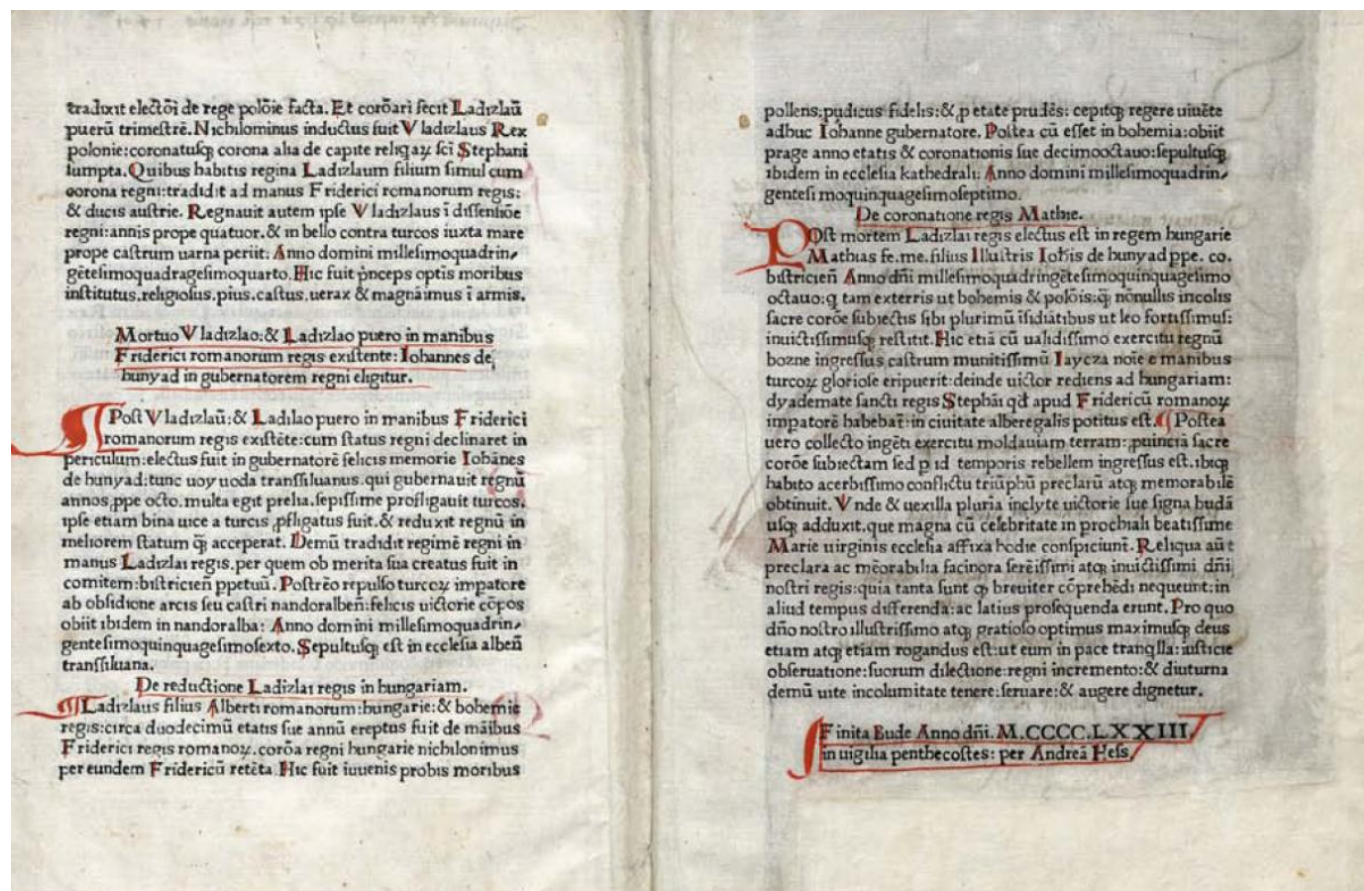 traduxit electōi de rege polōie facta. Et corōari fecit Ladizlaū
puerū trimestrē. Nichilominus inductus fuit Vladizlaus Rex
polonie: coronatusqꝫ corona alia de capite reliqaꝝ sci Stephani
sumpta. Quibus habitis regina Ladizlaum filium simul cum
corona regni: tradidit ad manus Friderici romanorum regis:
& ducis austrie. Regnauit autem ipse Vladizlaus ī dissensiōe
regni: annis prope quatuor. & in bello contra turcos iuxta mare
prope castrum uarna periit: Anno domini millesimoquadrin⸗
gētesimoquadragesimoquarto. Hic fuit ṗnceps optis moribus
institutus. religiosus. pius. castus. uerax & magnāimus ī armis.
Mortuo Vladizlao: & Ladizlao puero in manibus
Friderici romanorum regis existente: Iohannes de
hunyad in gubernatorem regni eligitur.
¶ Post Vladizlaū: & Ladilao puero in manibus Friderici
romanorum regis existēte: cum status regni declinaret in
periculum: electus fuit in gubernatorē felicis memorie Iohānes
de hunyad: tunc uoyuoda transsiluanus. qui gubernauit regnū
annos. ꝓpe octo. multa egit prelia. sepissime profligauit turcos.
ipse etiam bina uice a turcis ꝓfligatus fuit. & reduxit regnū in
meliorem statum q̄ꝫ acceperat. Demū tradidit regimē regni in
manus Ladizlai regis. per quem ob merita sua creatus fuit in
comitem: bistricien̄ ppetuū. Postrēo repulso turcoꝝ impatore
ab obsidione arcis seu castri nandoralben̄: felicis uictorie cōpos
obiit ibidem in nandoralba: Anno domini millesimoquadrin⸗
gentesimoquinquagesimosexto. Sepultusqꝫ est in ecclesia alben̄
transsiluana.
De reductione Ladizlai regis in hungariam.
¶ Ladizlaus filius Alberti romanorum: hungarie: & bohemie
regis: circa duodecimū etatis sue annū ereptus fuit de māibus
Friderici regis romanoꝝ. corōa regni hungarie nichilonimus
per eundem Fridericū retēta. Hic fuit iuuenis probis moribus
pollens: pudicus fidelis: & ꝓ etate prudēs: cepitqꝫ regere uiuēte
adhuc Iohanne gubernatore. Postea cū esset in bohemia: obiit
prage anno etatis & coronationis sue decimooctauo: sepultusqꝫ
ibidem in ecclesia kathedrali: Anno domini millesimoquadrin⸗
gentesimoquinquagesimoseptimo.
De coronatione regis Mathie.
POst mortem Ladizlai regis electus est in regem hungarie
Mathias fe. me. filius Illustris Iohis de hunyad ppe. co.
bistricien̄ Anno dn̄i millesimoquadringētesimoquinquagesimo
octauo: q tam exterris ut bohemis & polōis: q̄ꝫ nōnullis incolis
sacre corōe subiectis sibi plurimū īsidiātibus ut leo fortissimus:
inuictissimusqꝫ restitit. Hic etiā cū ualidissimo exercitu regnū
bozne ingressus castrum munitissimū Iaycza noīe e manibus
turcoꝝ gloriose eripuerit: deinde uictor rediens ad hungariam:
dyademate sancti regis Stephāi qd̄ apud Fridericū romanoꝝ
impatorē habebat̄: in ciuitate alberegalis potitus est. ¶ Postea
uero collecto ingēti exercitu moldauiam terram: ꝓuinciā sacre
corōe subiectam sed p id temporis rebellem ingressus est. ibiqꝫ
habito acerbissimo conflictu triūphū preclarū atqꝫ memorabilē
obtinuit. Vnde & uexilla pluria inclyte uictorie sue signa budā
usqꝫ adduxit. que magna cū celebritate in prochiali beatissime
Marie uirginis ecclesia affixa hodie conspiciunt̄. Reliqua aūt
preclara ac mēorabilia facinora serēissimi atqꝫ inuictissimi dn̄i
nostri regis: quia tanta sunt qꝫ breuiter cōprehēdi nequeunt: in
aliud tempus differenda: ac latius prosequenda erunt. Pro quo
dn̄o nostro illustrissimo atqꝫ gratioso optimus maximusqꝫ deus
etiam atqꝫ etiam rogandus est: ut eum in pace tranqlla: iusticie
obseruatione: suorum dilectione: regni incremento: & diuturna
demū uite incolumitate tenere: seruare: & augere dignetur.
Finita Bude Anno dn̄i. M.CCCC.LXXIII.
in uigilia penthecostes: per Andreā Hess.